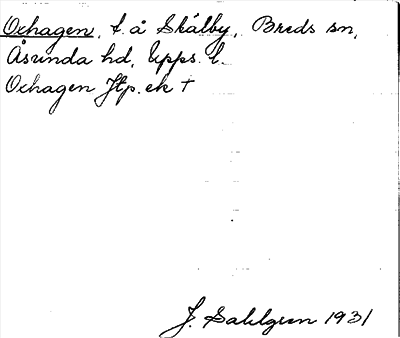 Oxhagen, t. å Skälby, Breds sn,
Åsunda hd, Upps. l.
Oxhagen Jtp. ek †
J. Sahlgren 1931